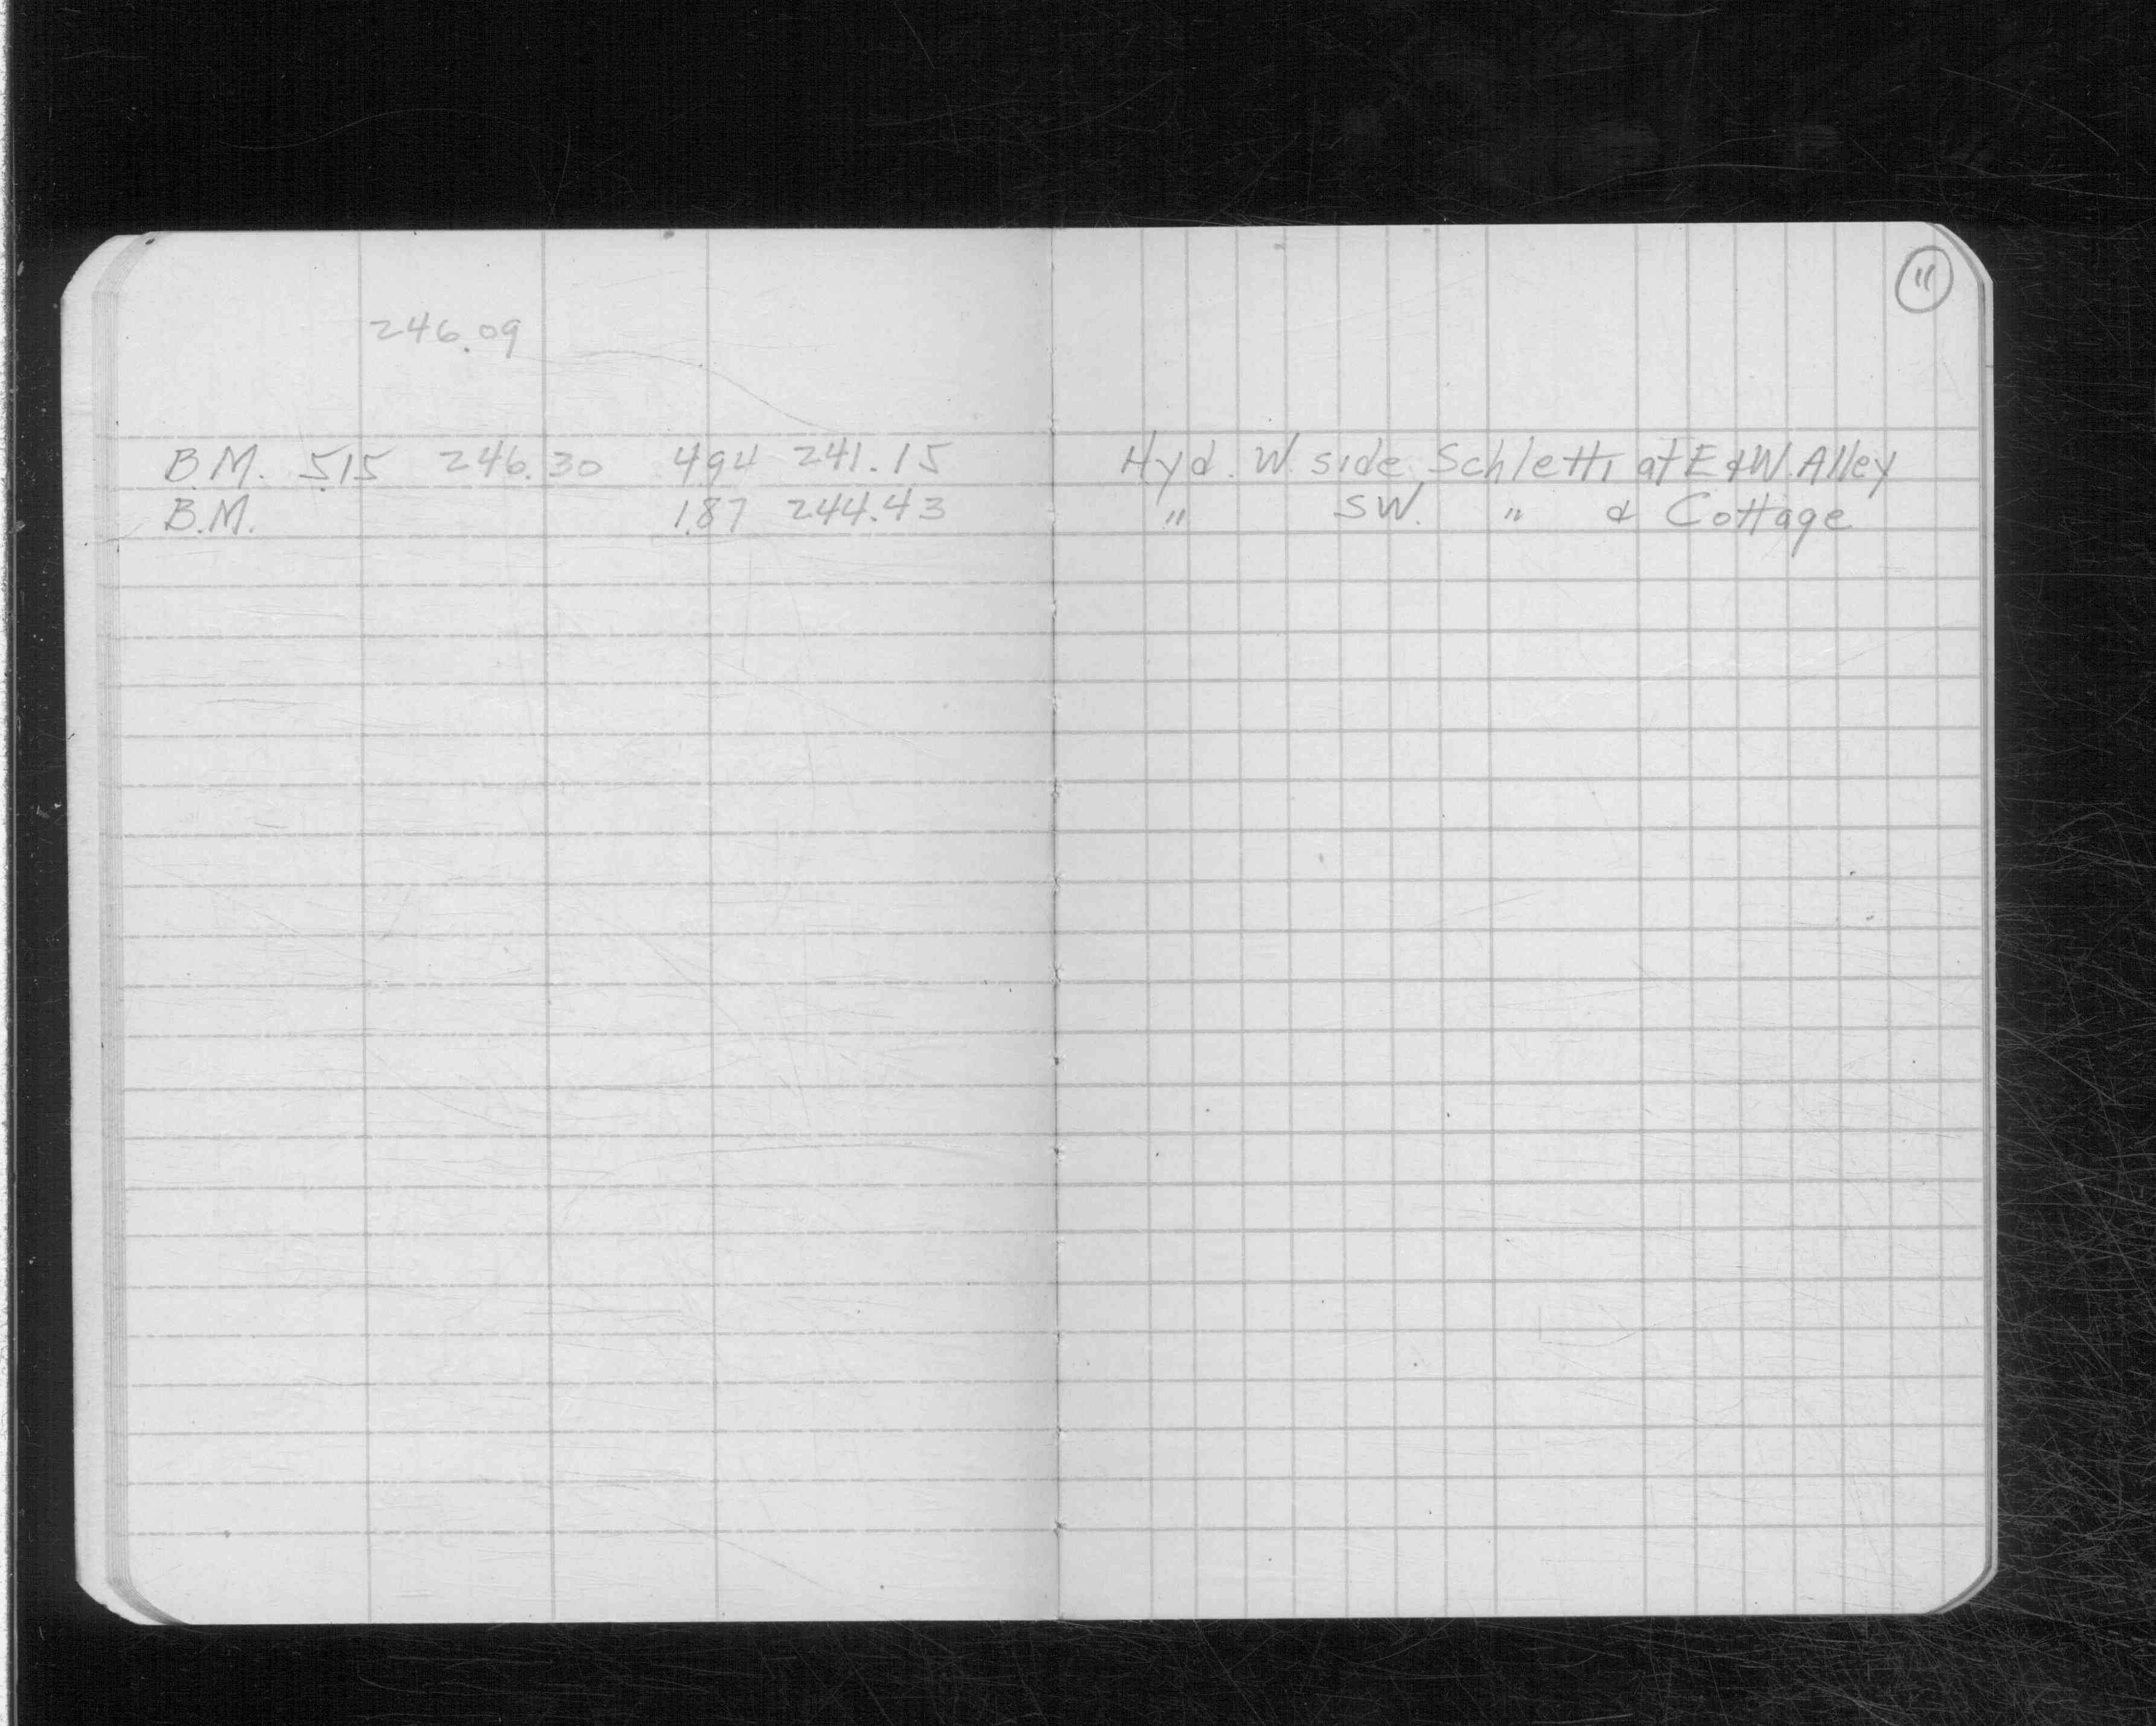 11
246.09
B.M. 5.15 246.30 4.94 241.15 Hyd. W. side Schletti at E & W. Alley
B.M. 1.87 244.43 " SW. " & Cottage